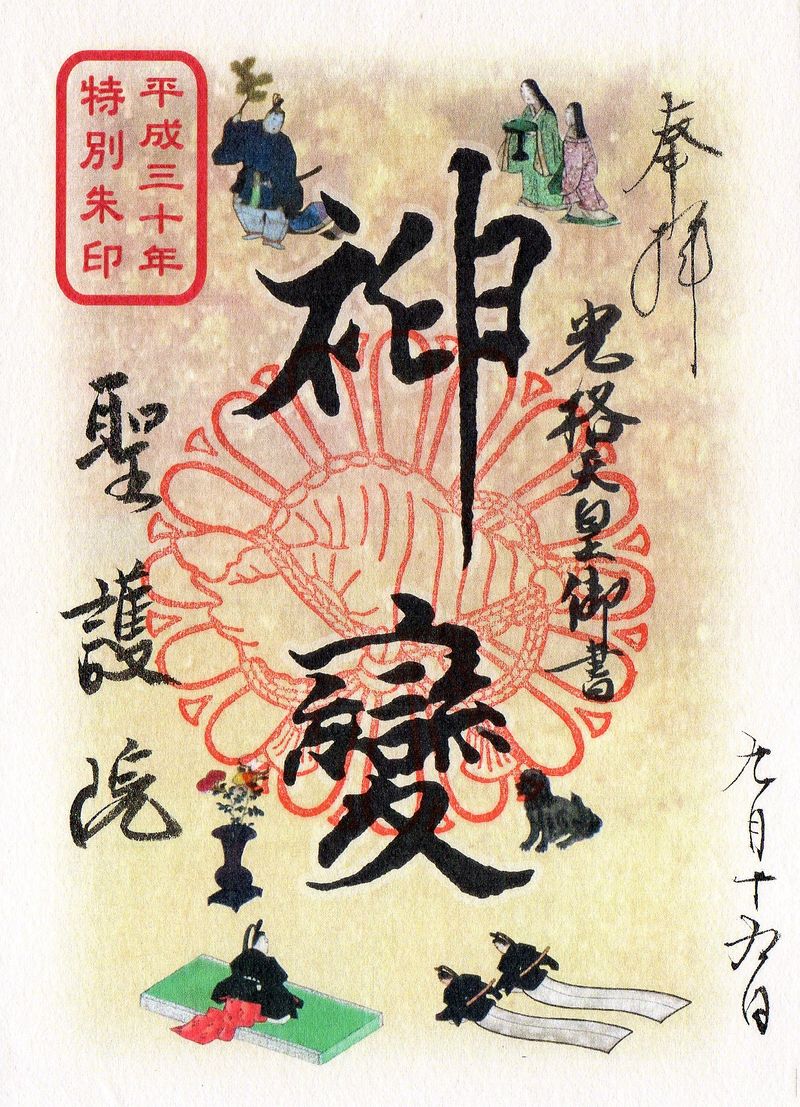 奉拝
九月十九日
光格天皇御書
神變
平成三十年
特別朱印
聖護院